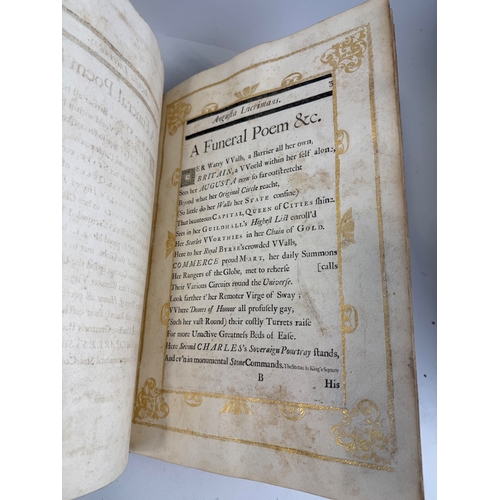 Augusta Lacrimans.
3
A Funeral Poem &c.
HER Watry VValls, a Barrier all her own,
BRITAIN, a VVorld within her self alone,
Sees her AUGUSTA now so far outstretcht
Beyond what her Original Circle reacht,
(So little do her Walls her STATE confine)
That beauteous CAPITAL, QUEEN of CITIES shine.
Sees in her GUILDHALL's Highest List enroll'd
Her Scarlet VVORTHIES in her Chain of GOLD.
Here to her Royal BYRSE's crowded VValls,
COMMERCE proud MART, her daily Summons
Her Rangers of the Globe, met to reherse [calls
Their Various Circuits round the Universe.
Look farther t'her Remoter Virge of Sway;
VVhere Domes of Honor all profusely gay,
(Such her vast Round) their costly Turrets raise
For more Unactive Greatness Beds of Ease.
Here Second CHARLES's Soveraign Pourtray stands,
And ev'n in monumental Stone Commands. The Statue in King's Square
B
His